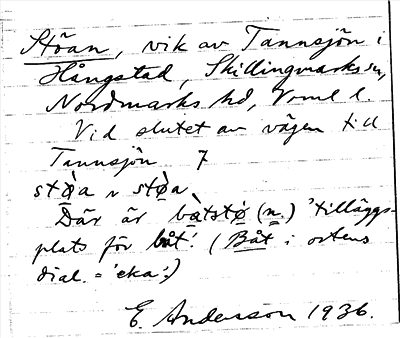 Stöan, vik av Tannsjön i
Hångstad, Skillingmarks sn,
Nordmarks hd, Vrml l.
Vid slutet av vägen till
Tannsjön 7
stø̀a ~ stø̀a
Där är bàtstø (n.) 'tilläggs-
plats för båt'. (Båt i ortens
dial. = 'eka'.)
E. Andersson 1936.